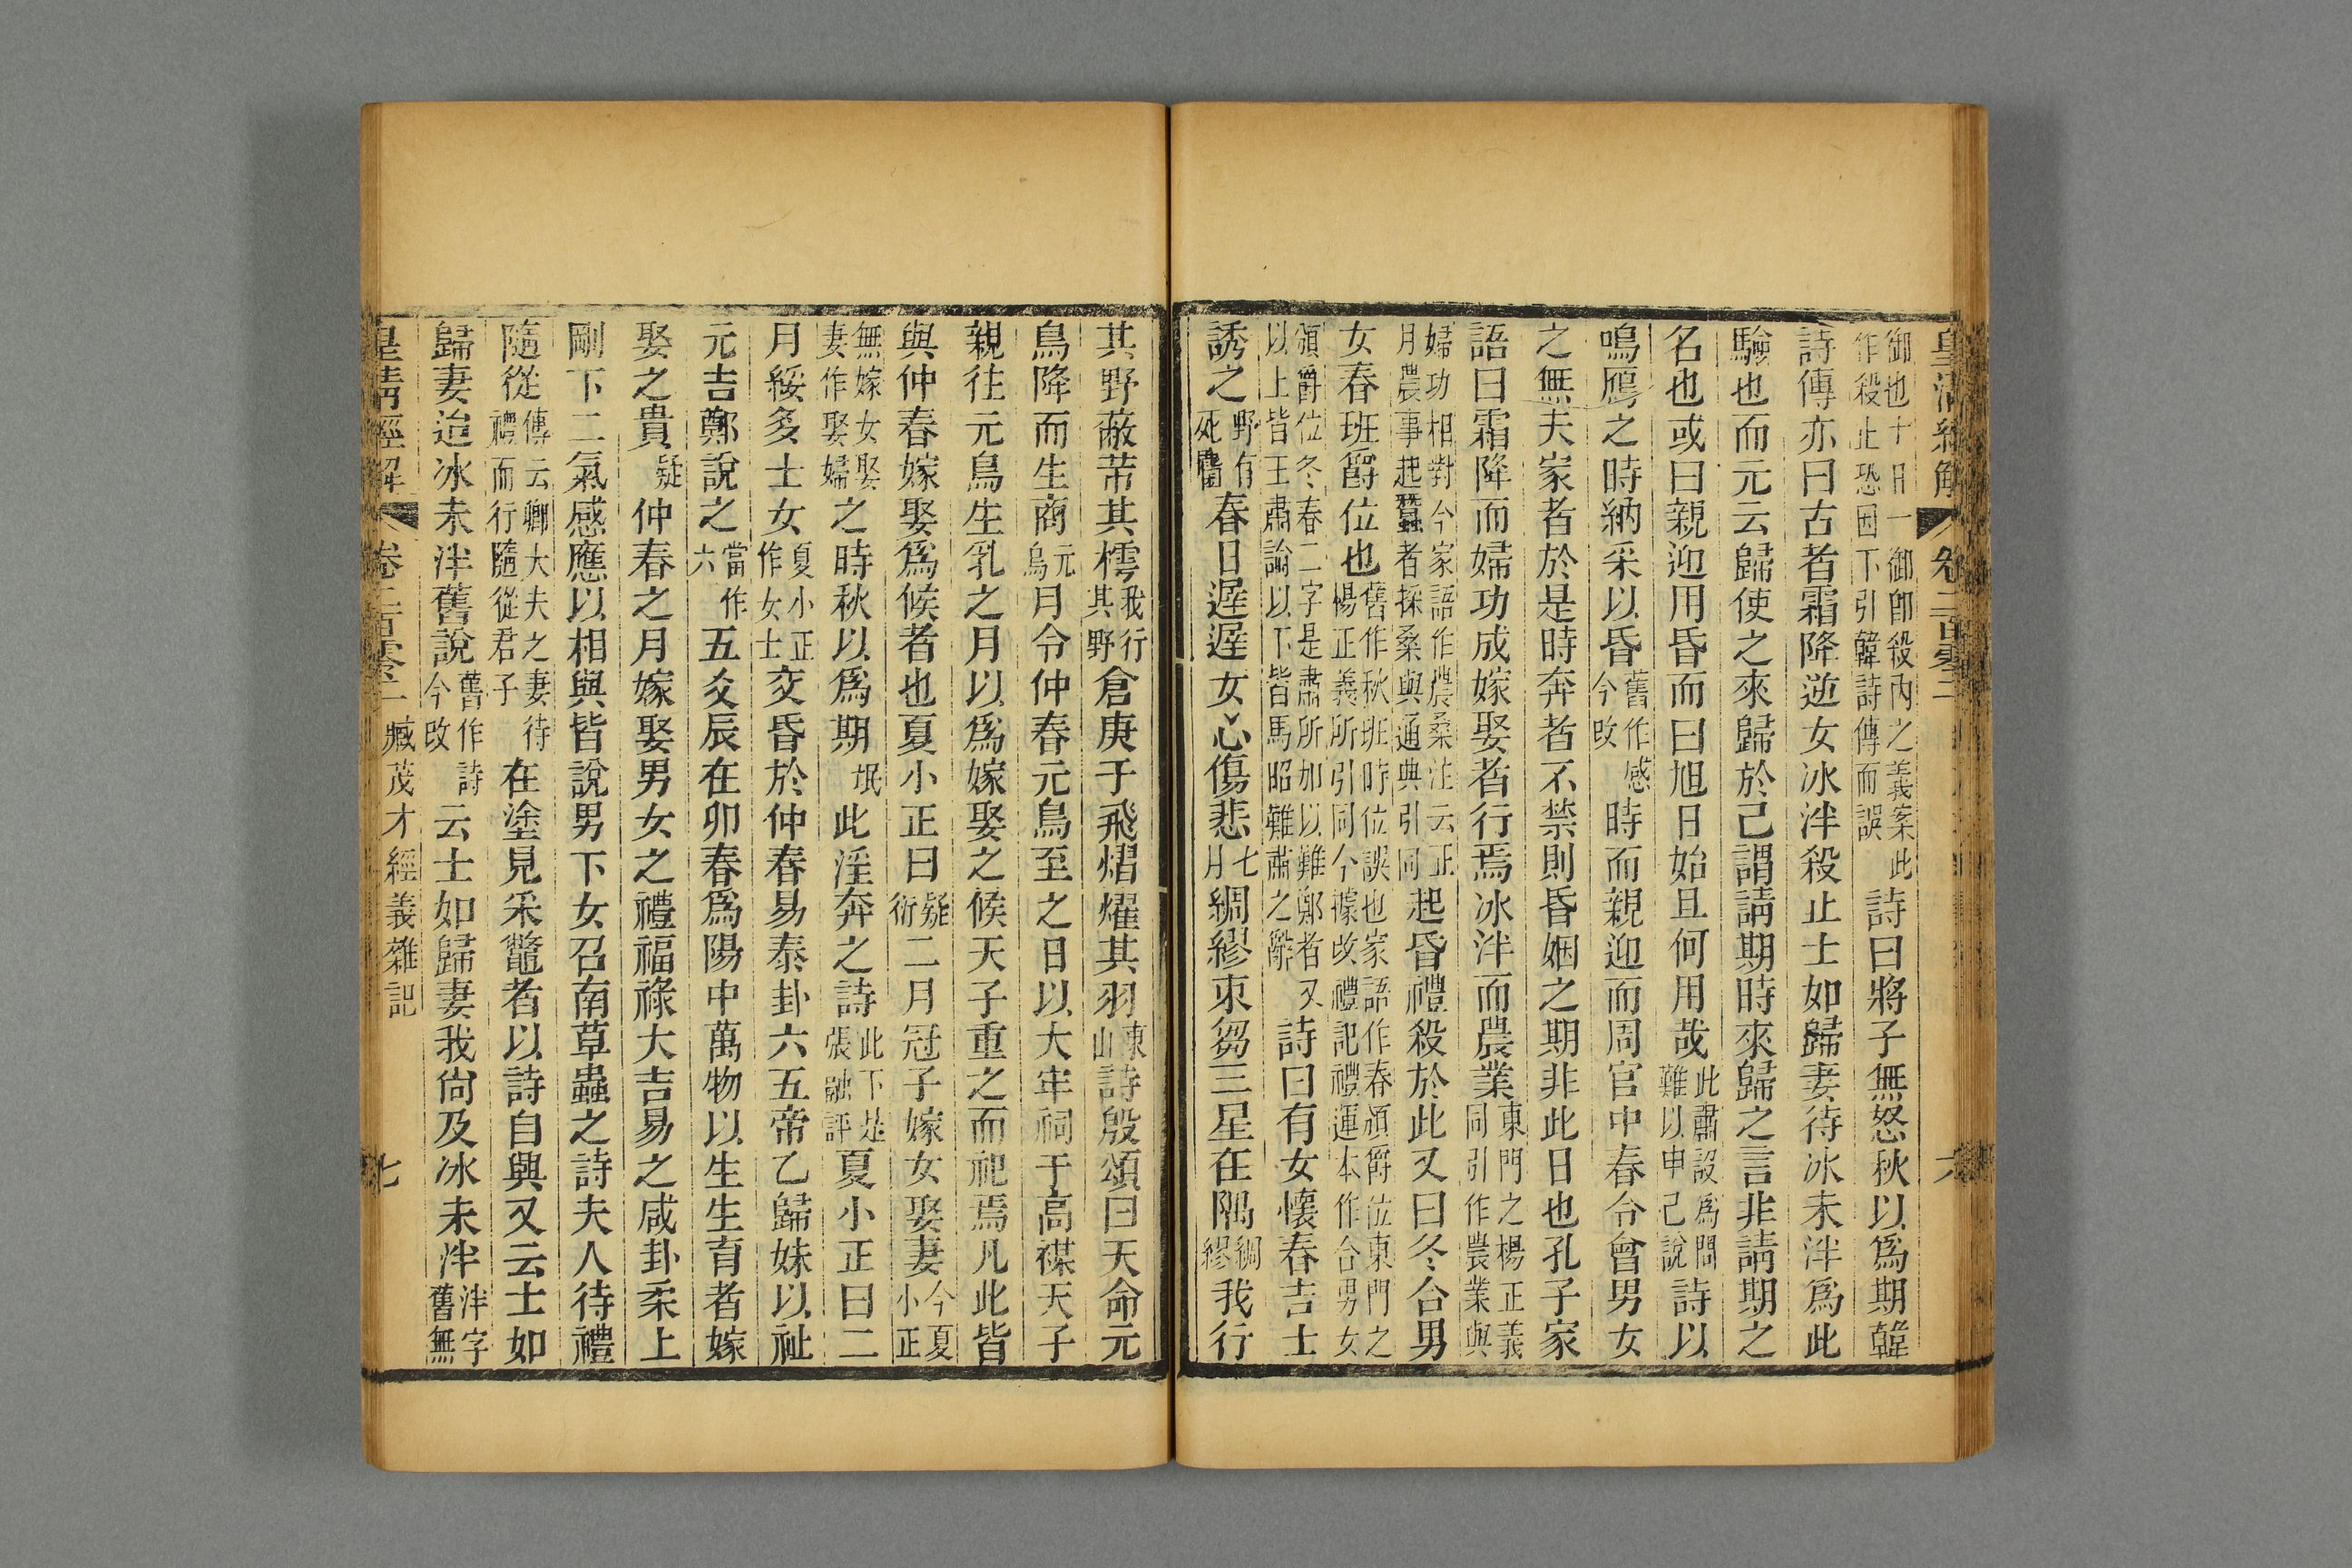 皇清經解 卷二百零二 六
御也十日一御卽殺內之義案此作殺止恐因下引韓詩傳而誤詩曰將子無怒秋以爲期韓
詩傳亦曰古者霜降逆女冰泮殺止士如歸妻待冰未泮爲此
驗也而元云歸使之來歸於己謂請期時來歸之言非請期之
名也或曰親迎用昏而曰旭日始旦何用哉此肅設爲問難以申己說詩以
鳴鴈之時納采以昏舊作感今改時而親迎而周官中春令會男女
之無夫家者於是時奔者不禁則昏姻之期非此日也孔子家
語曰霜降而婦功成嫁娶者行焉冰泮而農業東門之楊正義同引作農業與
婦功相對今家語作農桑注云正月農事起蠶者採桑與通典引同起昏禮殺於此又曰冬合男
女春班爵位也舊作秋班時位誤也家語作春頒爵位東門之楊正義所引同今據改禮記禮運本作合男女
頒爵位冬春二字是肅所加以難鄭者又以上皆王肅論以下皆馬昭難肅之辭詩曰有女懷春吉士
誘之野有死麕春日遲遲女心傷悲七月綢繆束芻三星在隅綢繆我行
其野蔽芾其樗我行其野倉庚于飛熠燿其羽東山詩殷頌曰天命元
鳥降而生商元鳥月令仲春元鳥至之日以大牢祠于高禖天子
親往元鳥生乳之月以爲嫁娶之候天子重之而祀焉凡此皆
與仲春嫁娶爲候者也夏小正曰疑衍二月冠子嫁女娶妻今夏小正
無嫁女娶妻作娶婦之時秋以爲期氓此淫奔之詩此下是張融評夏小正曰二
月綏多士女夏小正作女士交昏於仲春易泰卦六五帝乙歸妹以祉
元吉鄭說之當作六五爻辰在卯春爲陽中萬物以生生育者嫁
娶之貴疑仲春之月嫁娶男女之禮福祿大吉易之咸卦柔上
剛下二氣感應以相與皆說男下女召南草蟲之詩夫人待禮
隨從傳云卿大夫之妻待禮而行隨從君子在塗見采鼈者以詩自興又云士如
歸妻迨冰未泮舊說舊作詩今改云士如歸妻我尙及冰未泮泮字舊無
皇清經解 卷二百零二 臧茂才經義雜記 七